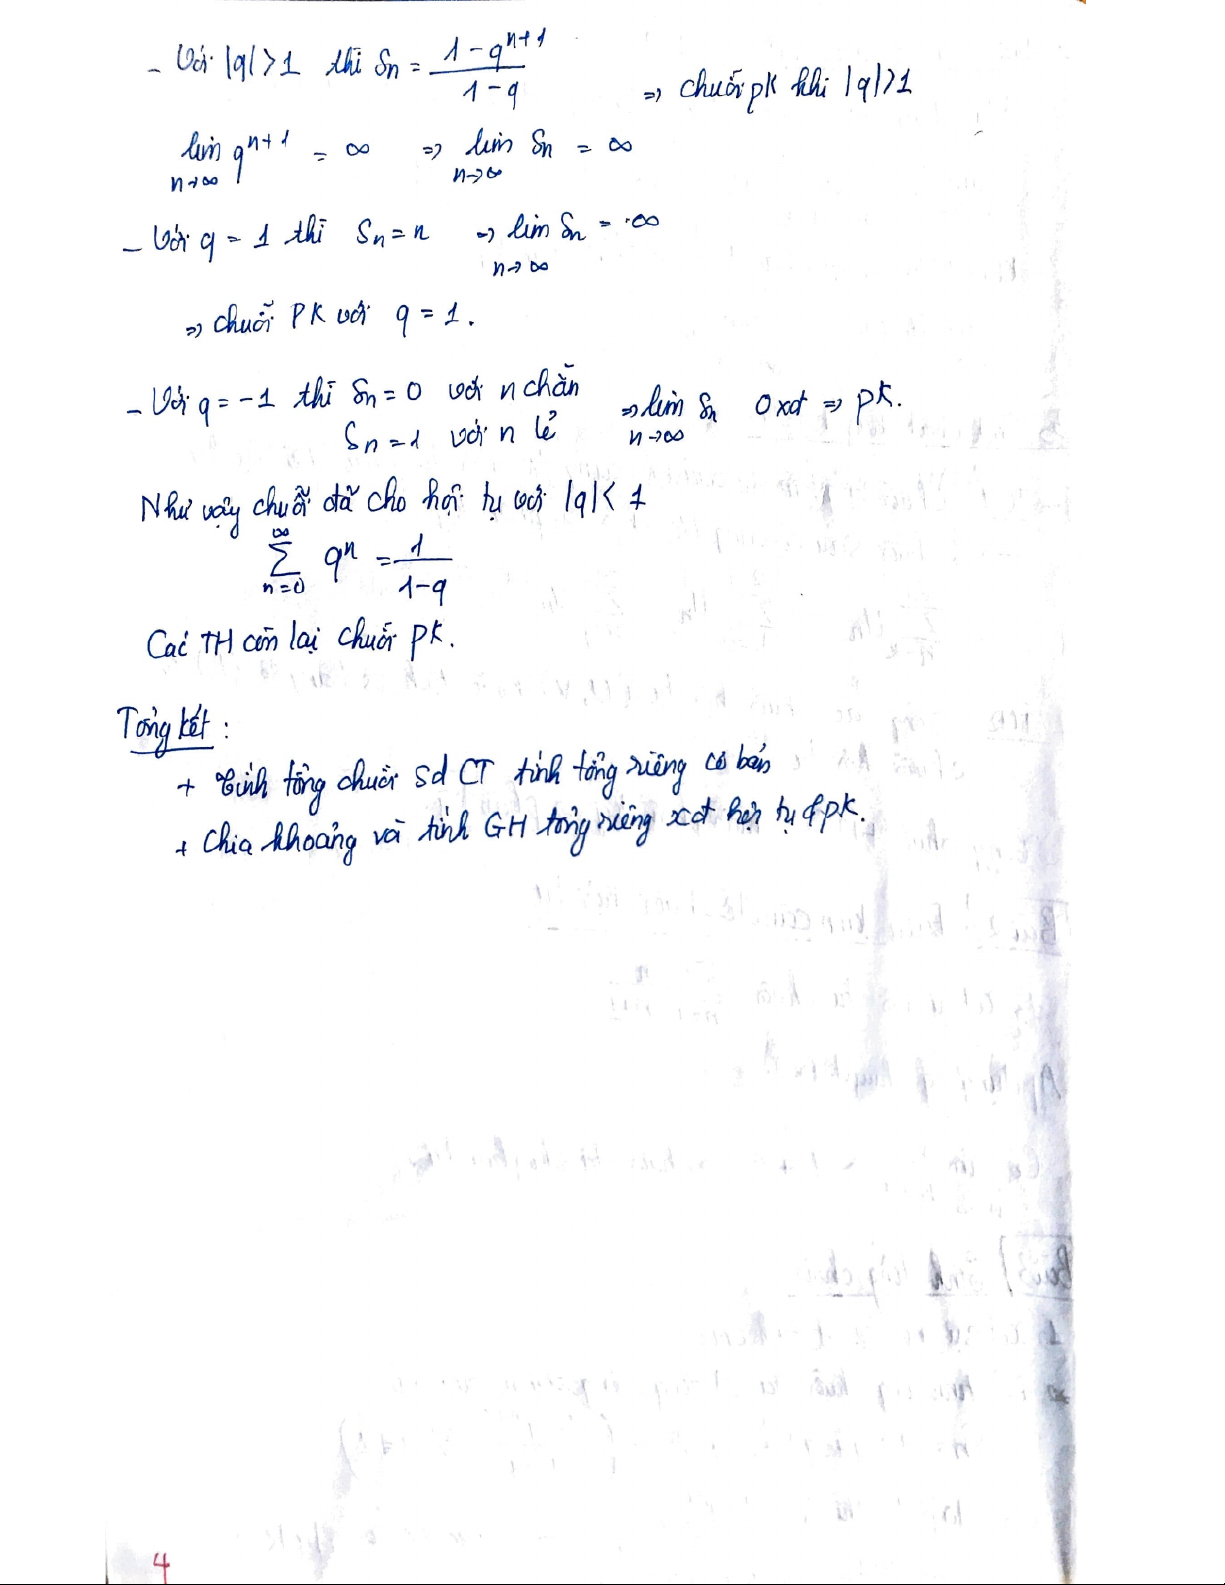 - Với |q| > 1 thì Sn = (1 - q^(n+1)) / (1 - q) => chuỗi pK khi |q| > 1
lim n→∞ q^(n+1) = ∞ => lim n→∞ Sn = ∞
- Với q = 1 thì Sn = n => lim n→∞ Sn = ∞
=> chuỗi PK với q = 1.
- Với q = -1 thì Sn = 0 với n chẵn
Sn = 1 với n lẻ => lim n→∞ Sn 0 xđ => pK.
Như vậy chuỗi đã cho hội tụ với |q| < 1
∑ n=0 ∞ q^n = 1 / (1 - q)
Các TH còn lại chuỗi pK.
Tổng kết :
+ Tính tổng chuỗi sd CT tính tổng riêng cơ bản
+ Chia khoảng và tính GH tổng riêng xđ hội tụ & pK.
4